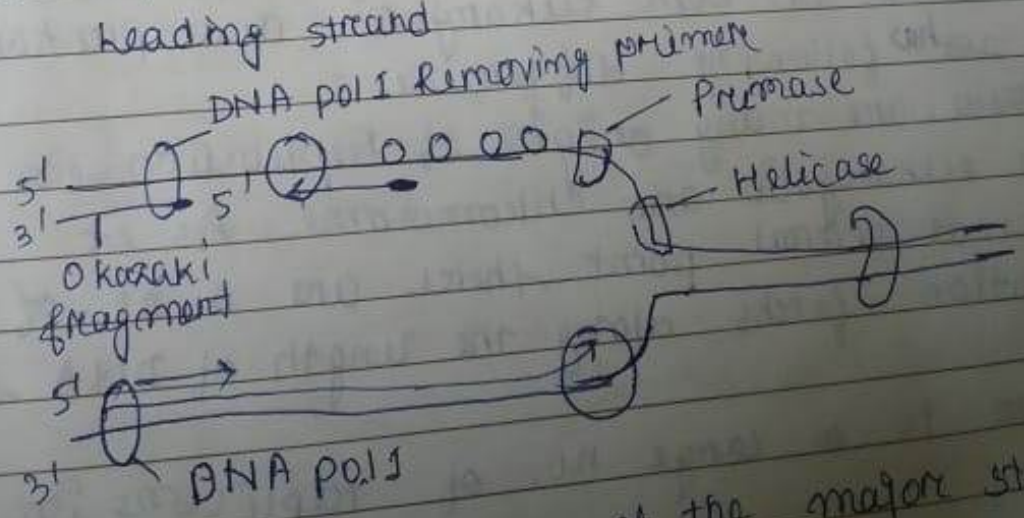 Leading strand
DNA pol I Removing primer
Primase
5'
3'
5'
Helicase
Okazaki
fragment
5'
3'
DNA pol I
the major st